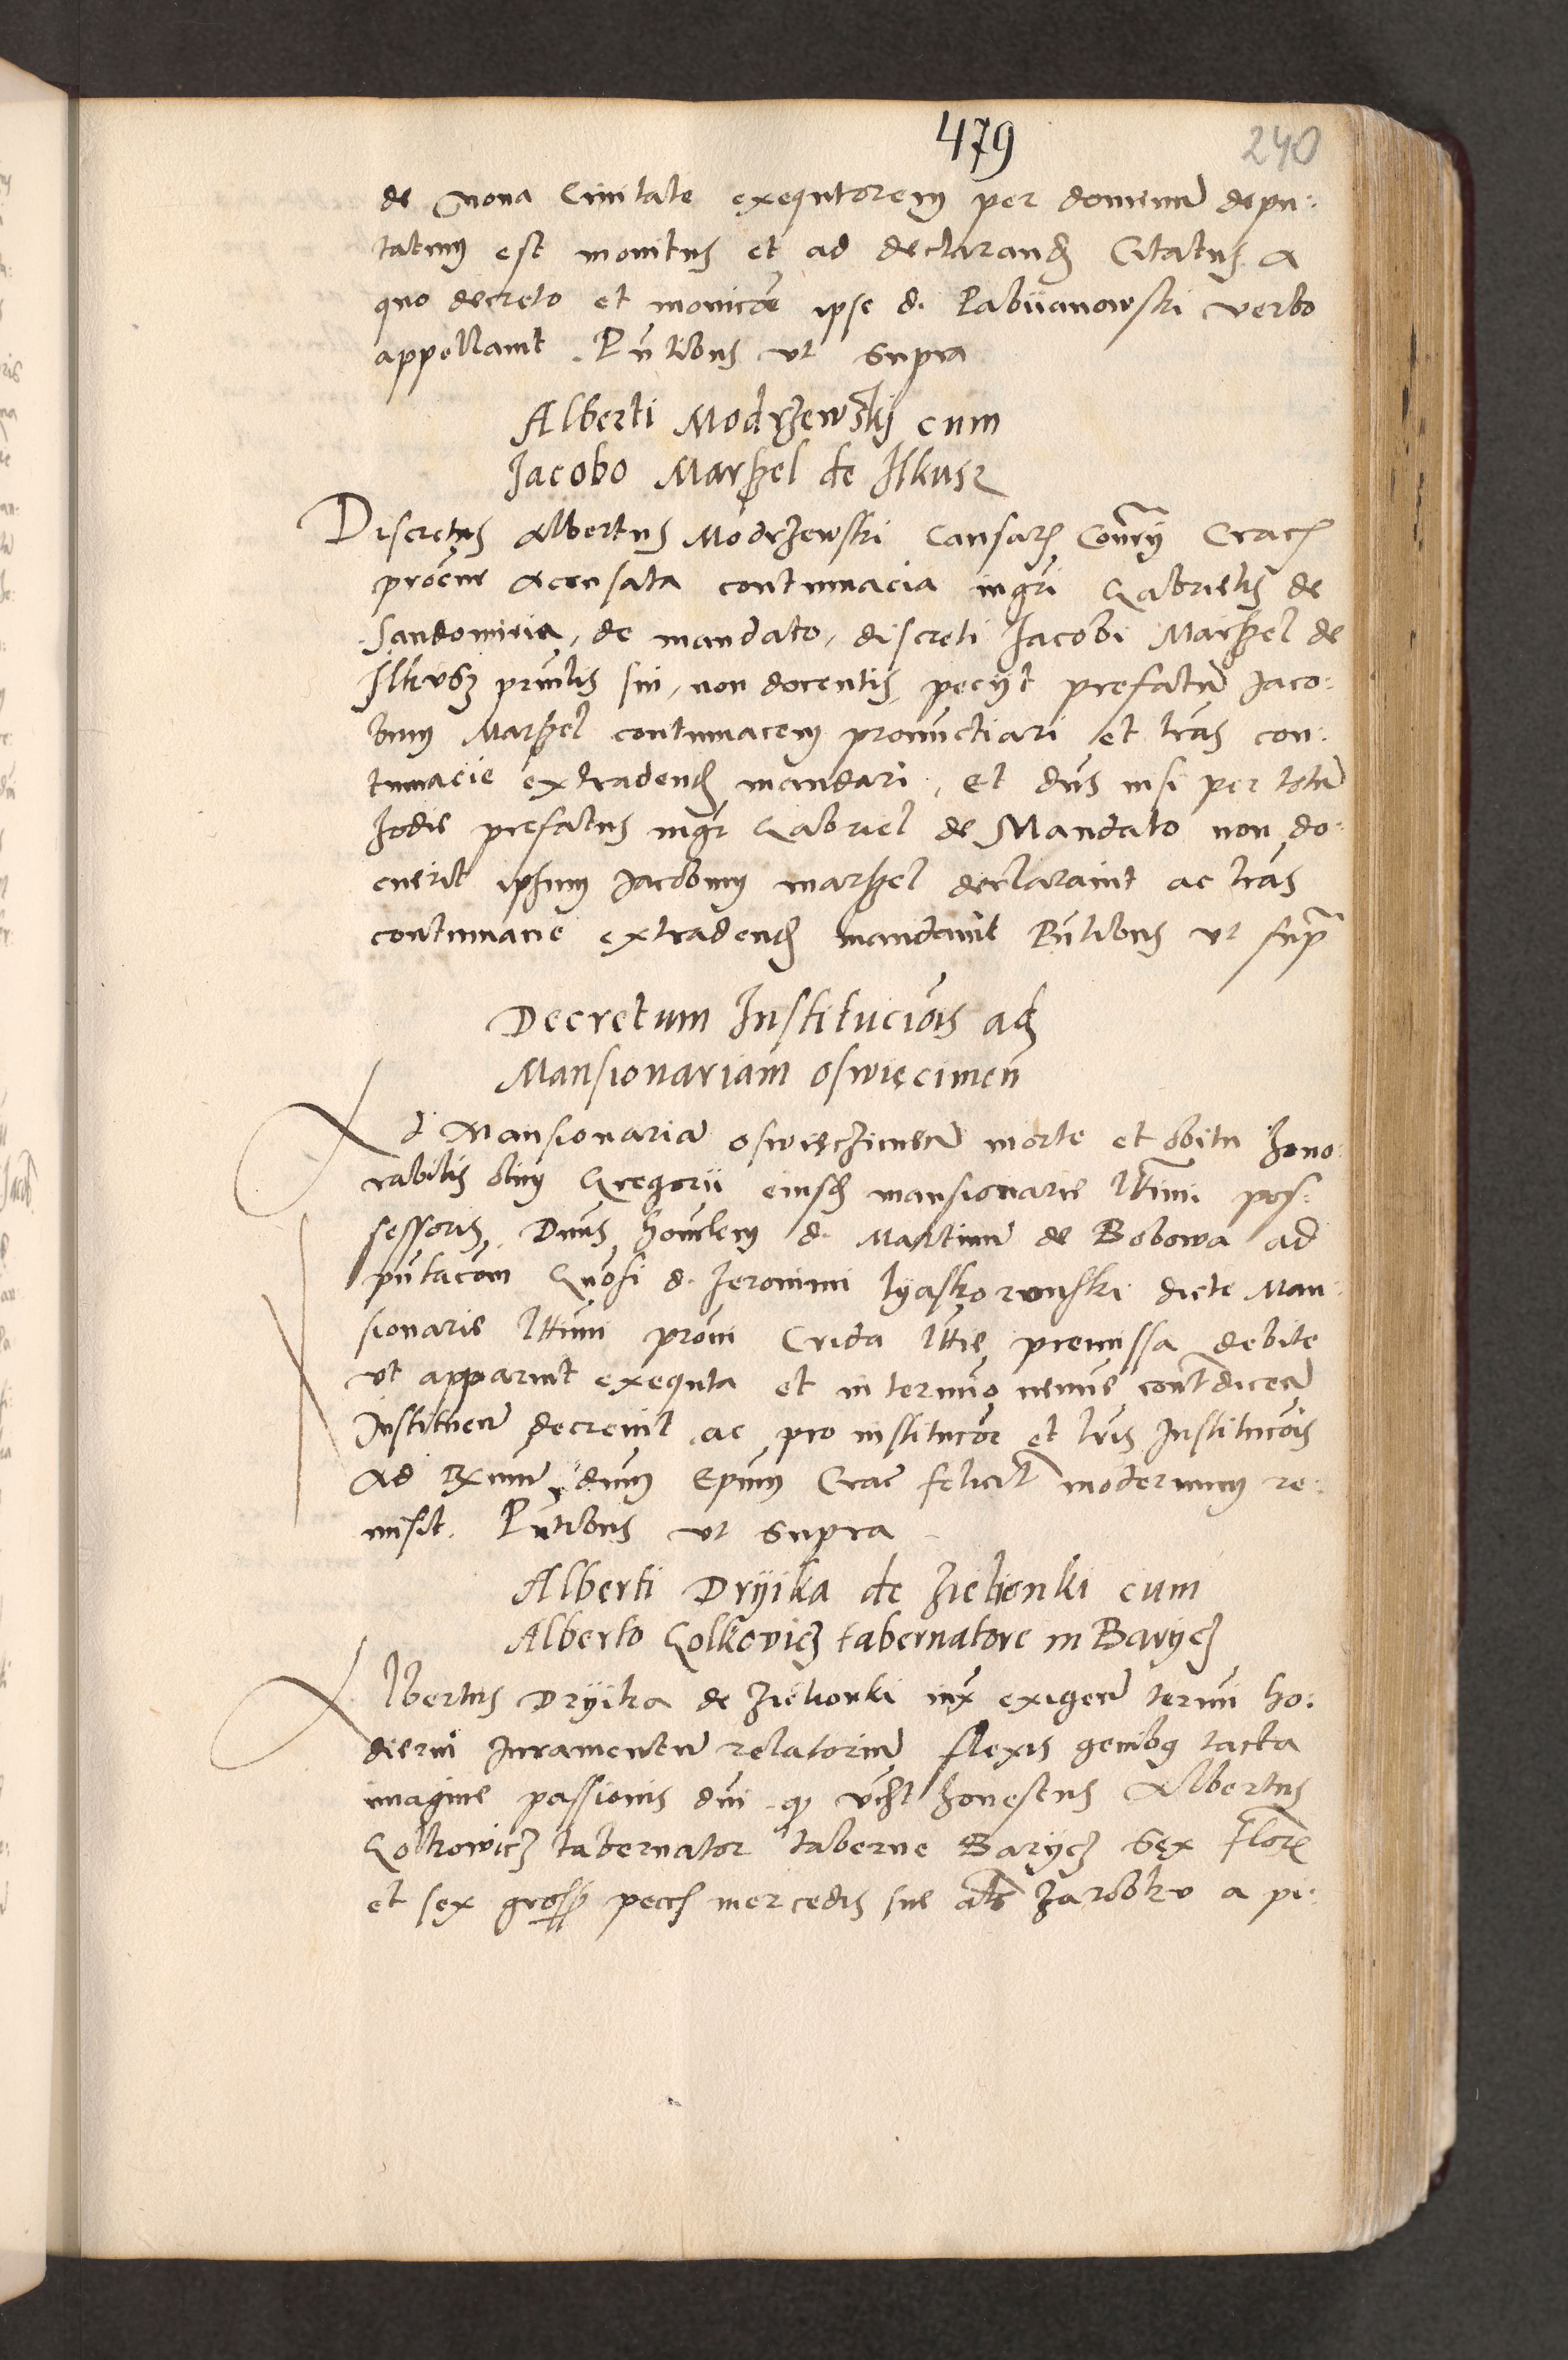 479
240
de nova Civitate exequtorem per dominum depu:
tatum est monitus et ad declarand Citatus. A
quo decreto et monicoe ipse d. Pabiianowski verbo
appellavit. Pntibus vt supra
Alberti Modrzewskij cum
Jacobo Marszel de Ilkusz
Discretus Albertus Modrzewski Causar Conrij Crac
procur Accusata contumacia mgri Gabrielis de
Sandomiria, de mandato, discreti Jacobi Marszel de
Ilkusz prnlis sui, non docentis, petijt prefatum Jaco:
bum Marszel contumacem pronunctiari et lras con:
tumacie extradend mandari, Et dns nisi per totum
hodie prefatus mgr Gabriel de Mandato non do:
cuerit ipsum Jacobum marszel declaravit ac lras
contumacie extradend mandavit Pntibus vt supra
Decretum Institucionis ad
Mansionariam oswiecimen
Ad Mansionariam oswięczimen morte et obitu hono:
rabilis olim Gregorii eiusd mansionarie lttimi pos:
sessoris. Dnus honlem d. Martinum de Bobowa ad
pntacom Gnosi d. Jeronimi Lyaskoronski dicte Man
sionarie lttimi proni Crida lttie premissa debite
vt apparuit exequta et in termino nemine contradicen
Instituen decrevit ac pro institucoe et lris Institucois
Ad Rxmum dnum Epum Crac felicit modernum re:
misit. Pntibus vt supra
Alberti Dryika de Zielionki cum
Alberto Golkovicz tabernatore in Barycz
Albertus Dryika de Zielionki iux exigen termi ho:
dierni Iuramentum relatorium flexis genibus tacta
imagine passionis dni q vcht honestus Albertus
Golkowicz tabernator taberne Barycz sex Flor
et sex gross pecc mercedis sue als Zarobku a pi: